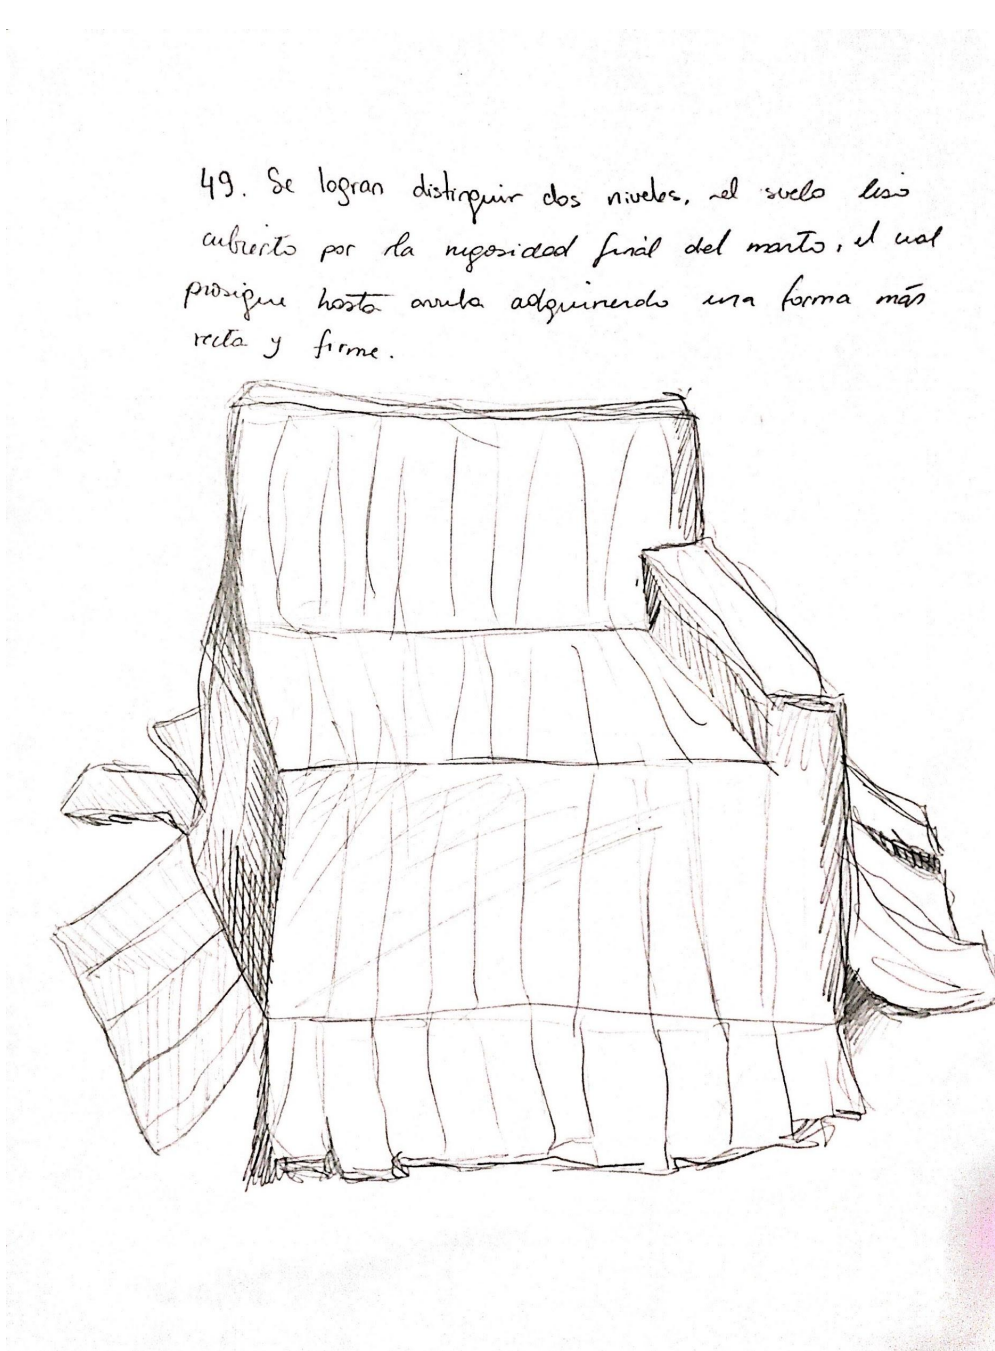 49. Se logran distinguir dos niveles, el suelo liso
cubierto por la rugosidad final del manto, el cual
prosigue hasta arriba adquiriendo una forma más
recta y firme.